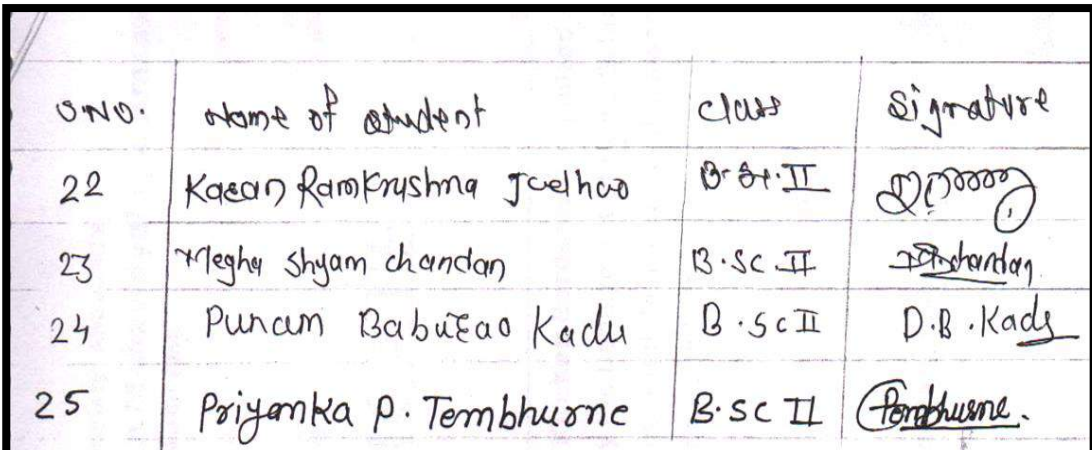 S.NO. Name of student Class Signature
22 Karan Ramkrushna B.Sc. II
23 Megha Shyam chandan B.SC II chandan
24 Punam Baburao Kadu B.Sc II D.B.Kadu
25 Priyanka P. Tembhurne B.SC II Tembhurne.